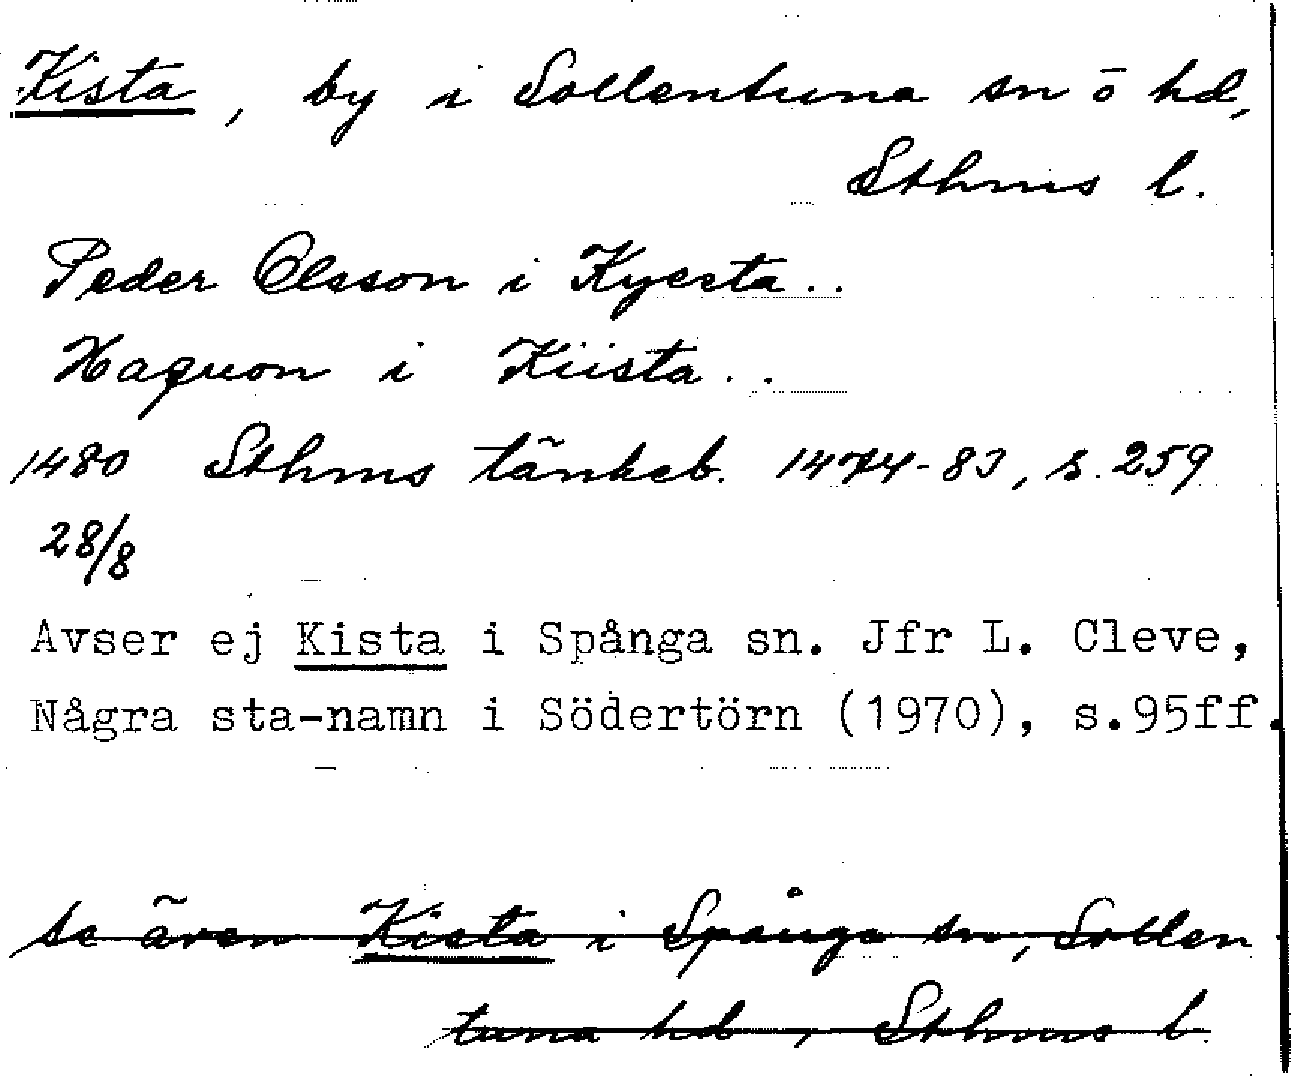 Kista, by i Sollentuna sn ō hd,
Sthms l.
Peder Olsson i Kyesta..
Haquon i Kiista..
1480 Sthms tänkeb. 1474-83, s. 259
28/8
Avser ej Kista i Spånga sn. Jfr L. Cleve,
Några sta-namn i Södertörn (1970), s.95ff.
se även Kista i Spånga sn, Sollen
tuna hd, Sthms l.